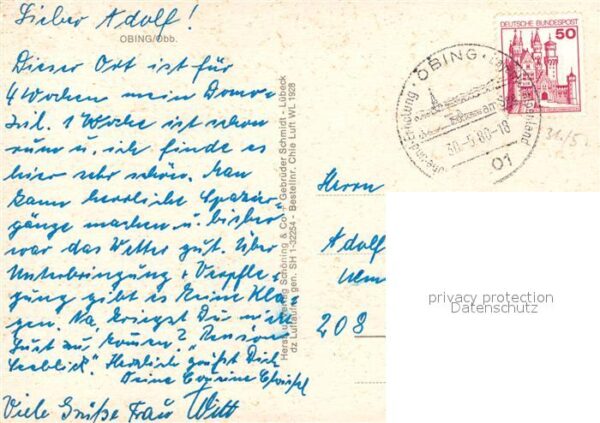 Lieber Adolf!
OBING/Obb.
Dieser Ort ist für
4 Wochen mein Domi-
zil. 1 Woche ist schon
rum u. ich finde es
hier sehr schön. Man
kann herrliche Spazier-
gänge machen u. bisher
war das Wetter gut. Über
Unterbringung + Verpfle-
gung gibt es keine Kla-
gen. Na, kriegst Du nicht
Lust zu kommen? "Pension
Seeblick". Herzlich grüßt Dich
Deine Cousine
Viele Grüße Frau Witt
Herst. u. Verlag Schöning & Co + Gebrüder Schmidt - Lübeck
dz Luftaufn. gen. SH 1-32254 - Bestellnr. Chie Luft WL 1928
DEUTSCHE BUNDESPOST
50
OBING
30.-5.80-18
01
Herrn
Adolf
208
privacy protection
Datenschutz